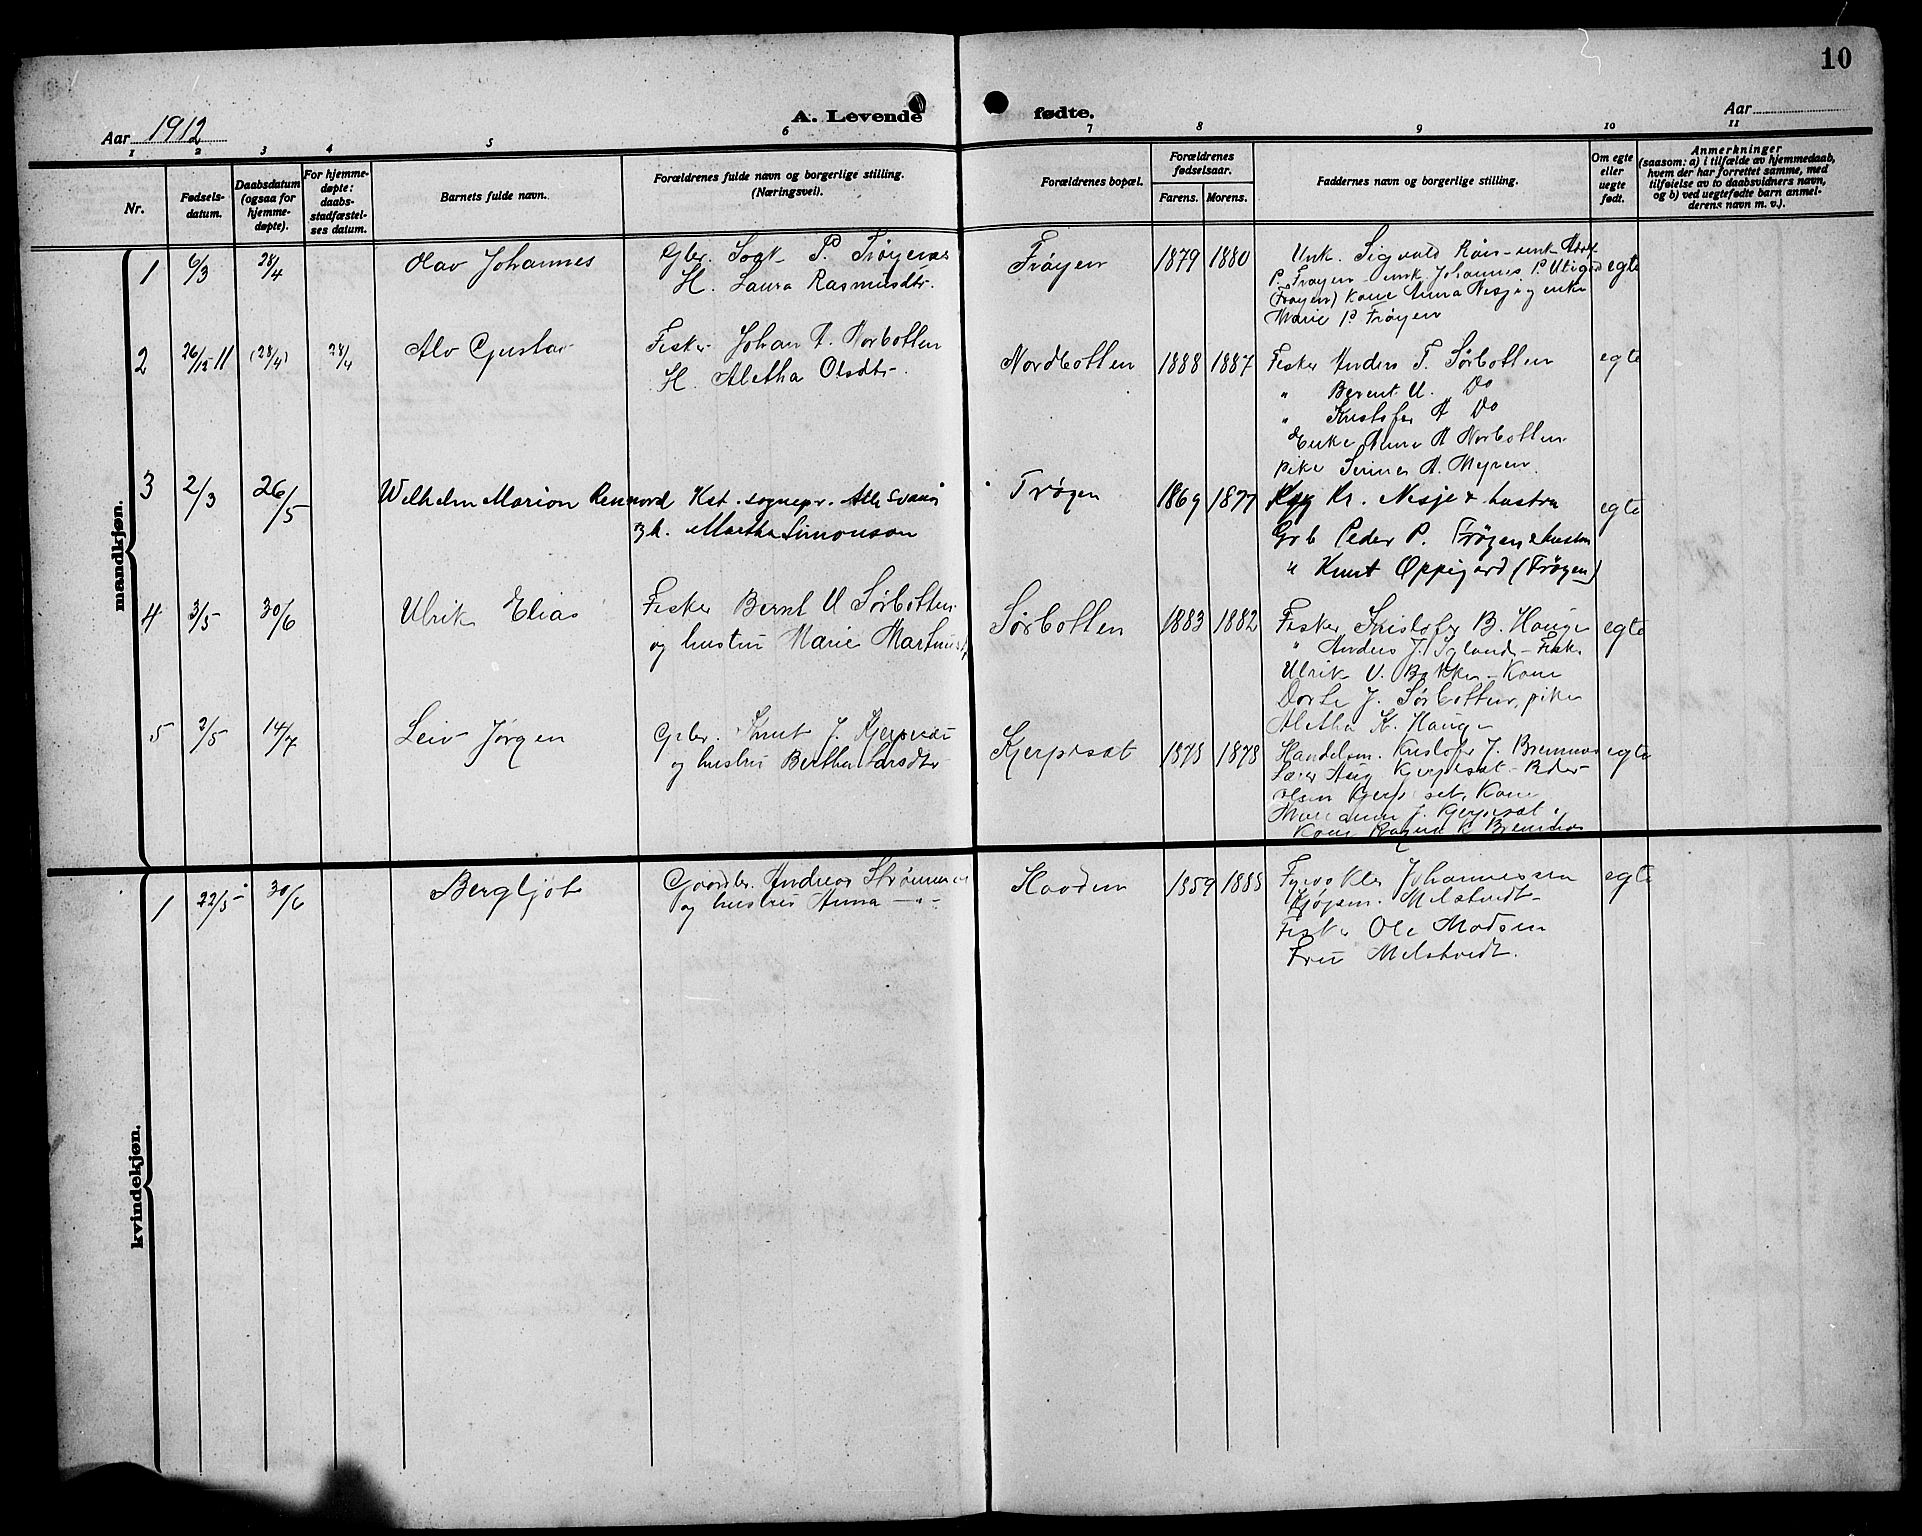 10
Aar 1912
A. Levende fødte.
Aar
1 2 3 4 5 6 7 8 9 10 11
Nr.
Fødsels-
datum.
Daabsdatum
(ogsaa for
hjemme-
døpte).
For hjemme-
døpte:
daabs-
stadfæstel-
ses datum.
Barnets fulde navn.
Forældrenes fulde navn og borgerlige stilling.
(Næringsvei).
Forældrenes bopæl.
Forældrenes
fødselsaar.
Farens. Morens.
Faddernes navn og borgerlige stilling.
Om egte
eller
uegte
født.
Anmerkninger
(saasom: a) i tilfælde av hjemmedaab,
hvem der har forrettet samme, med
tilføielse av to daabsvidners navn,
og b) ved uegtefødte barn anmel-
derens navn m. v.).
mandkjøn.
1 6/3 28/4 Olav Johannes
Gbr. P. Frøyen
H. Laura Rasmusdtr.
Frøyen 1879 1880
Unk. Sigvald
P. Frøyen unk. Johannes P.
(Frøyen) Kone Anna Nesje og enke
Marie P. Frøyen
egte
2 26/12-11 (28/4) 28/4 Alv Gustav
Fisker Johan A. Norbotten
H. Aletha Olsdtr.
Nordbotten 1888 1887
Fisker Anders T. Sørbotten
" Berent U. Do
" Kristofer A Do
Enke Anna A Norbotten
pike A. Myren.
egte
3 2/3 26/5 Wilhelm Marion Rennord
Kst. sognepr. Atle Svanø
og h. Martha Simonson
Frøyen 1869 1877
Kr. Nesje & hustru
Grb Peder P. Frøyen & hustru
" Knut Oppigard (Frøyen)
egte
4 3/5 30/6 Ulrik Elias
Fisker Bernt U Sørbotten
og hustru Marie
Sørbotten 1883 1882
Fisker Kristofer B. Hauge
" Anders J. Igland - Fisk.
Ulrik U. Bakken - Kone
Dorte J. Sørbotten, pike
Aletha K. Hauge
egte
5 2/5 14/7 Leiv Jørgen
Gbr. Knut J.
og hustru Bertha Larsdtr
Kjerpesæt 1878 1878
Handelsm. Kristofer J. Bremnes
Aug Kjerpesæt - Peder
Olsen Kjerpeset, Kone
Marianne J. Kjerpesæt
Kone Ragna K Bremnes
egte
kvindekjøn.
1 22/5 30/6 Bergljot
Gaardbr. Andreas
og hustru Anna - " -
1859 1885
Johannessen
Melstvedt
Fisker Ole Madsen
Fru Melstvedt.
egte